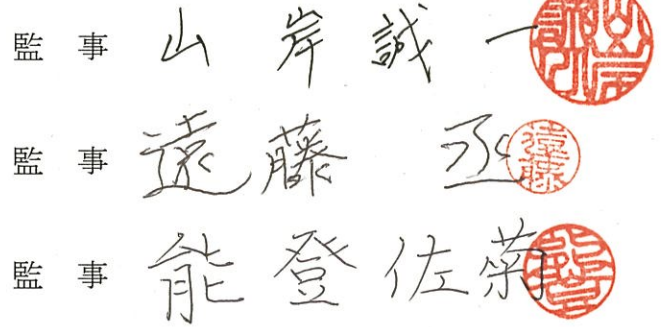 監事 山岸誠一
監事 遠藤 丞
遠藤
監事 能登佐菊